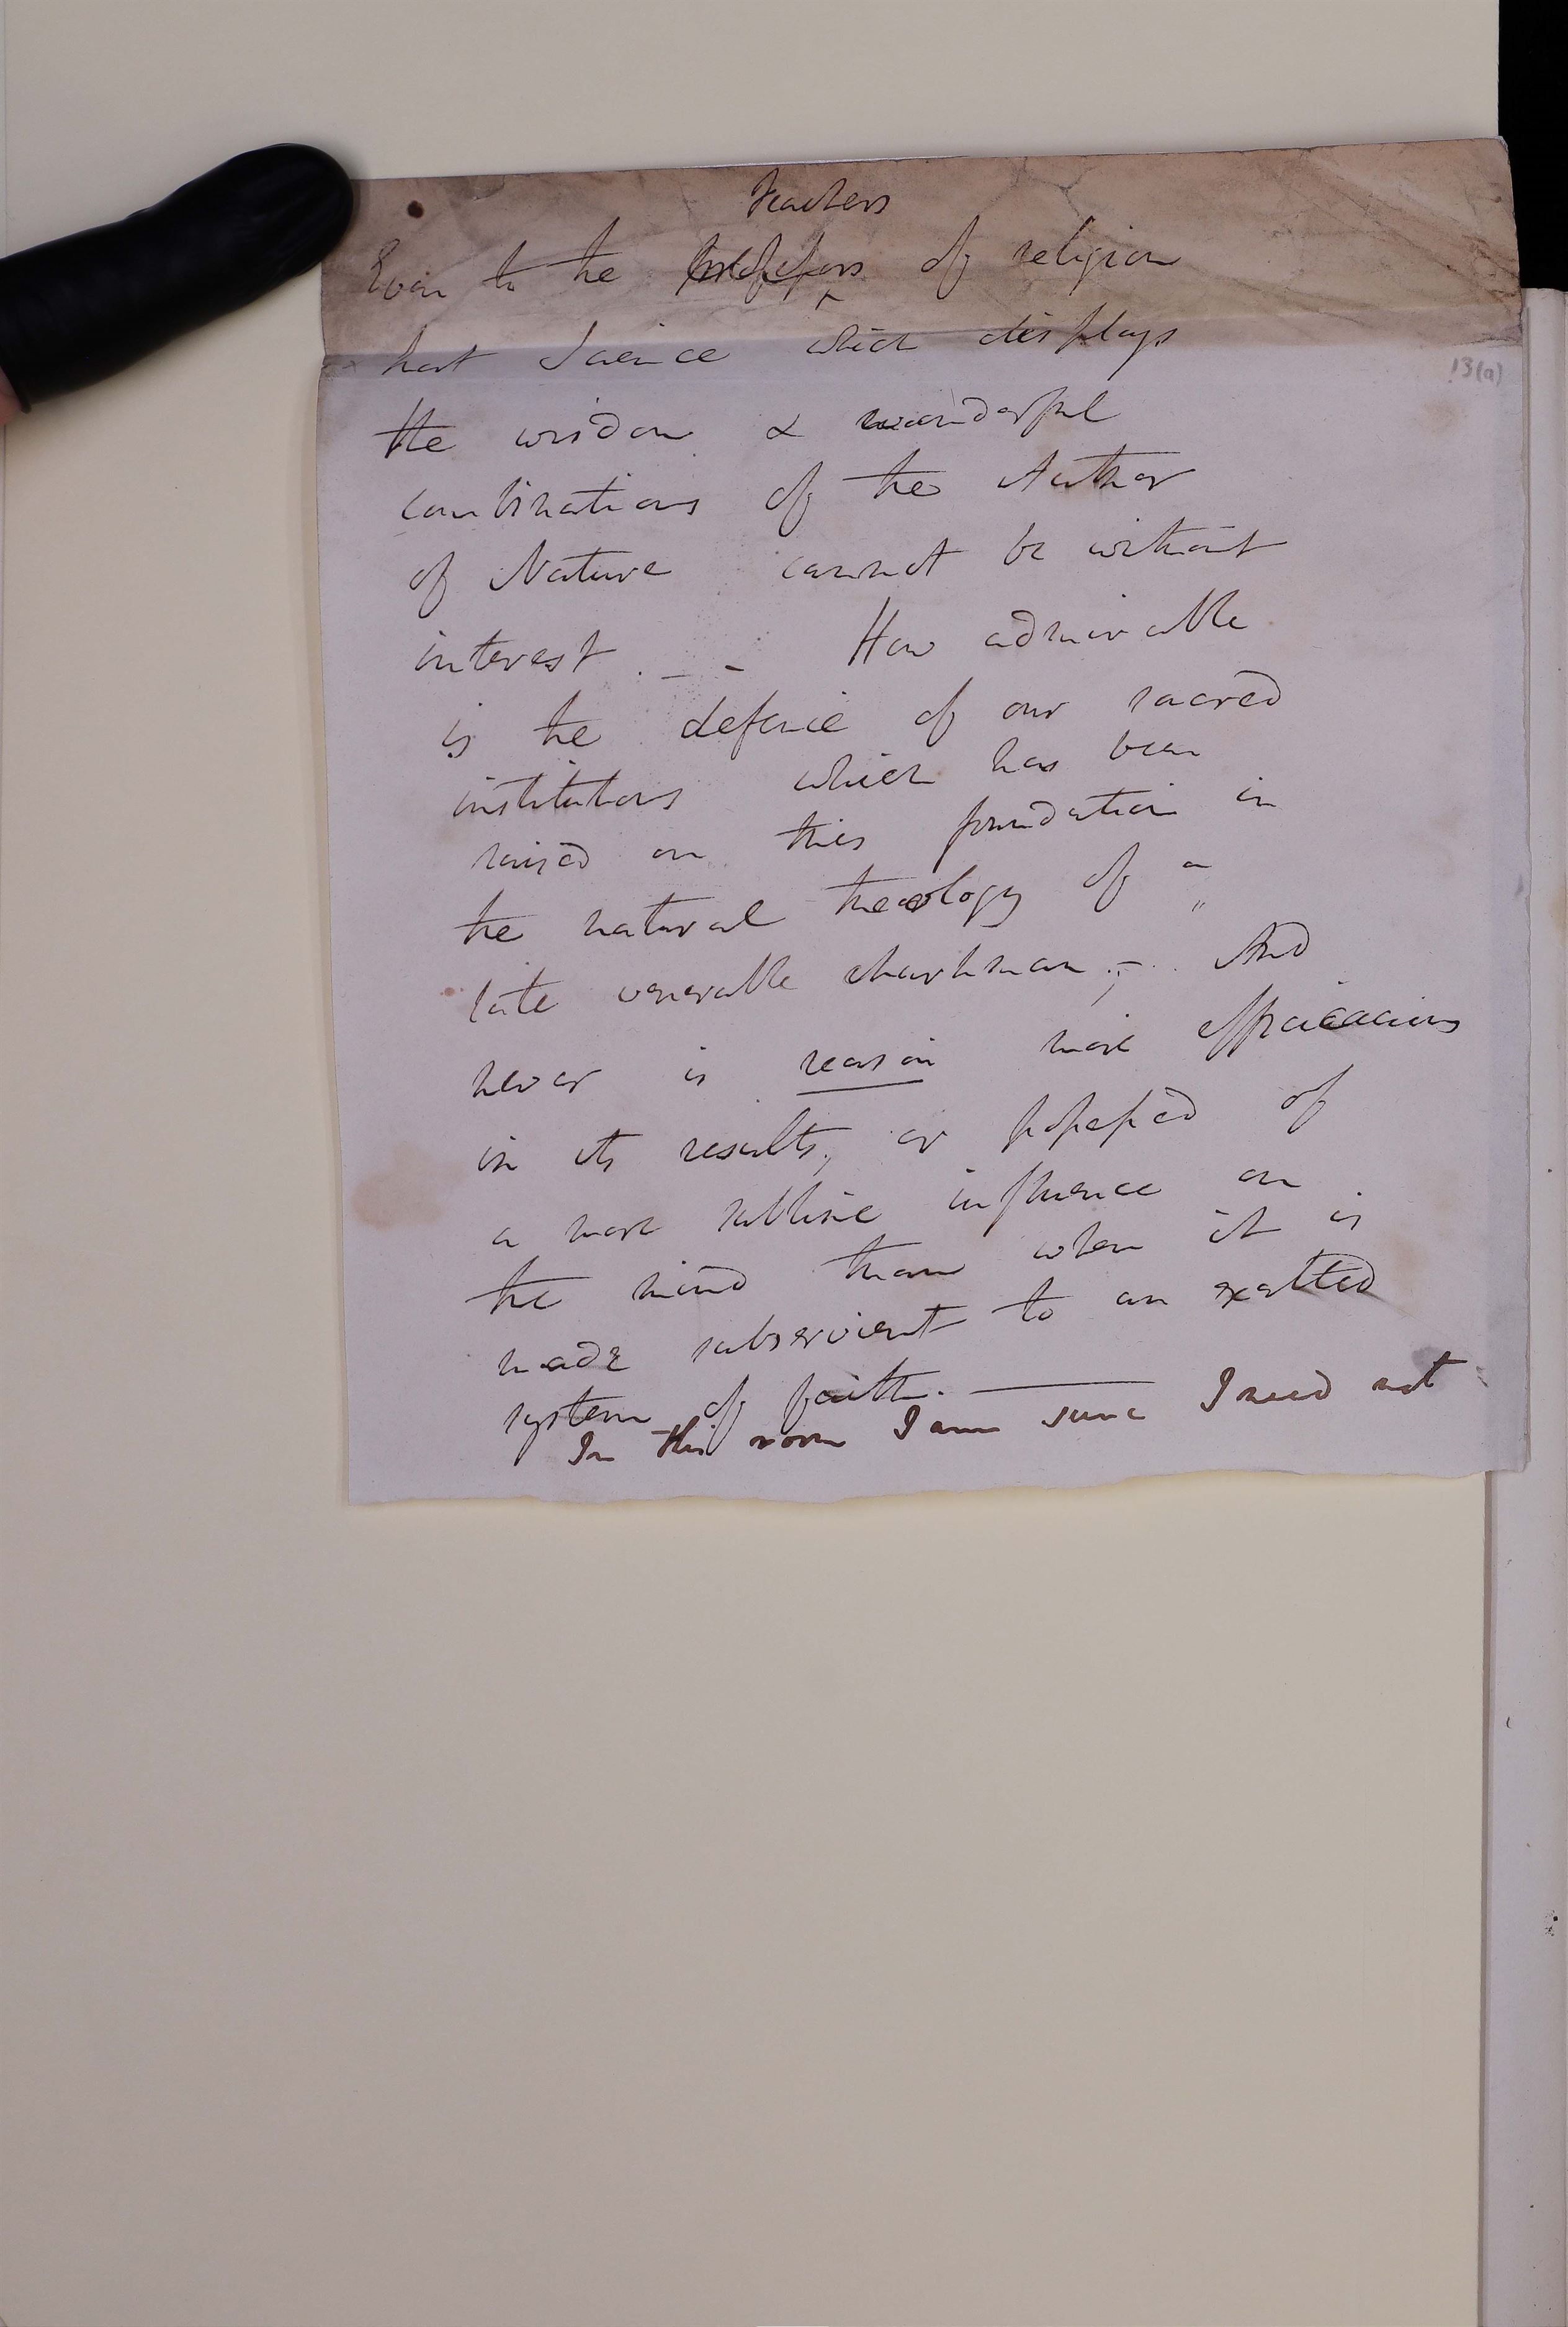 teachers
Even to the professors of religion
that Science which displays
13(a)
the wisdom & wonderful
combinations of the Author
of Nature cannot be without
interest. _ - How admirable
is the defence of our sacred
institutions which has been
raised on this foundation in
the natural theology of a
late venerable churchman; - And
never is reason more efficacious
in its results, or possessed of
a more sublime influence on
the mind than when it is
made subservient to an exalted
system of faith. ——
In this room I am sure I need not